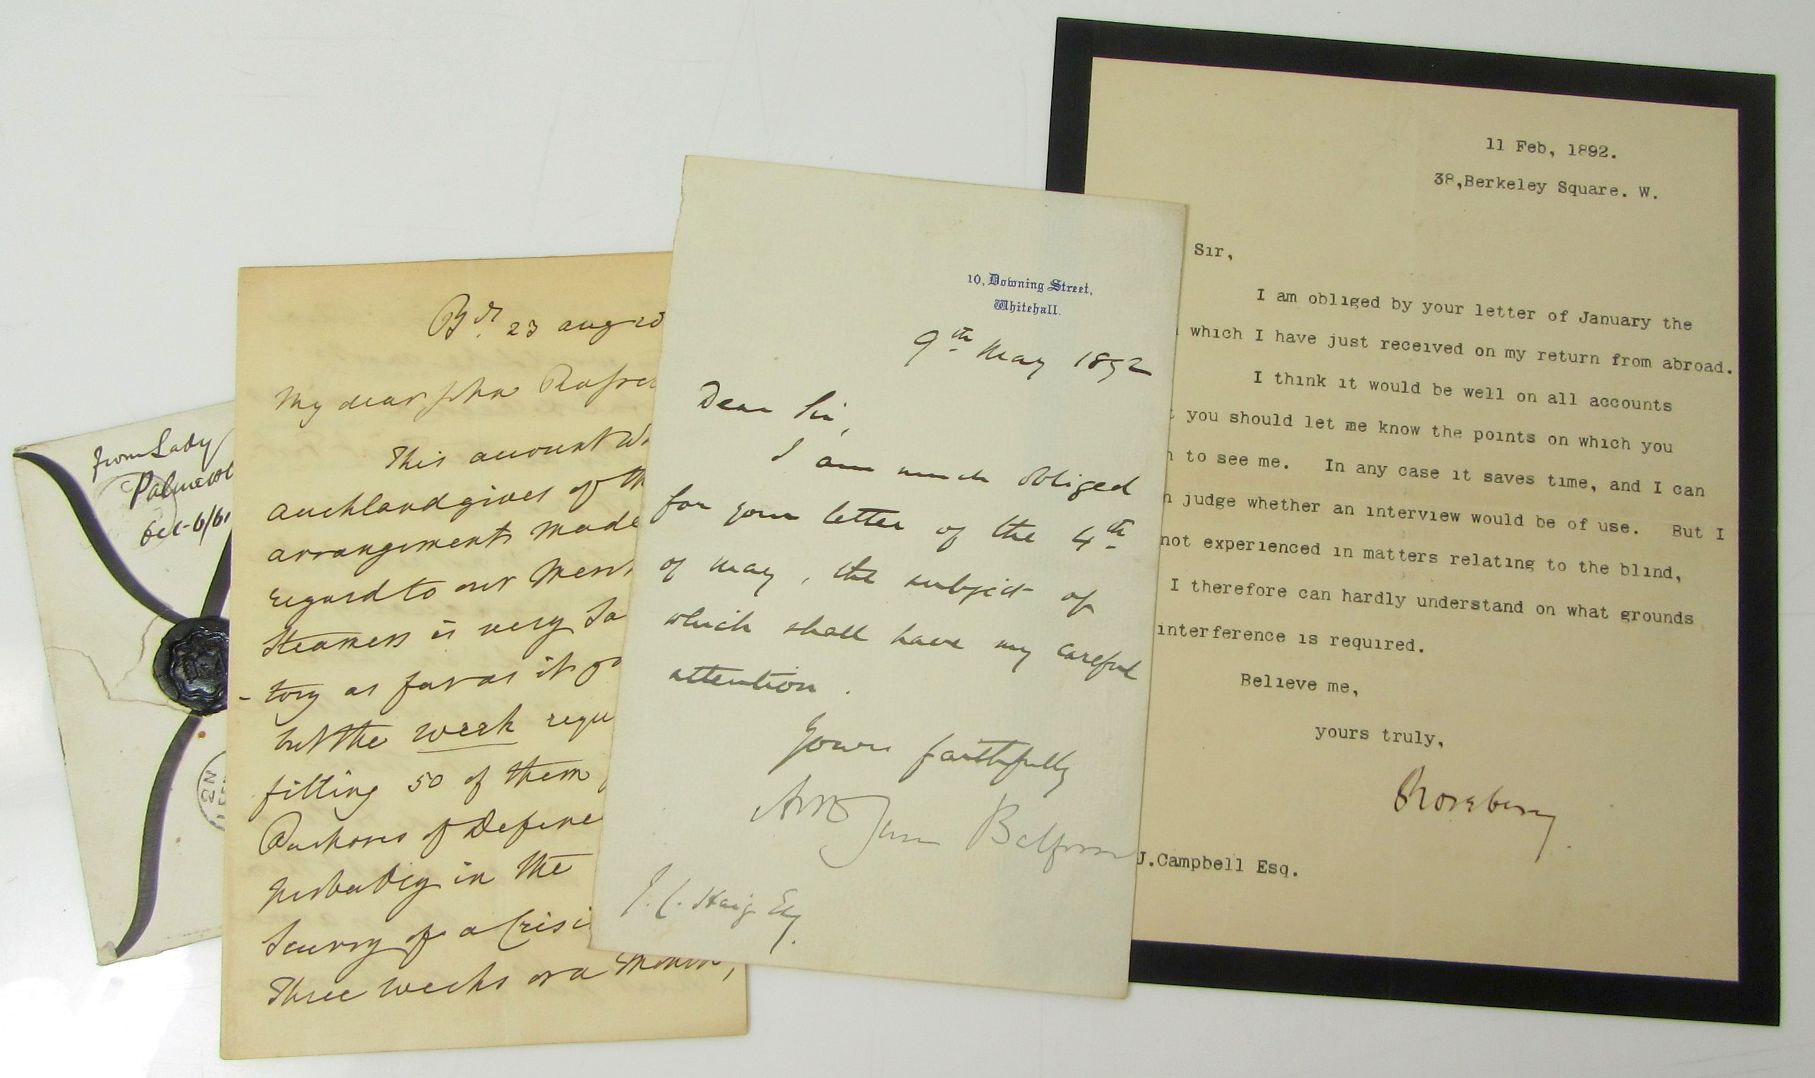 from Lady
Oct-6/61
23 aug
My dear John
This account
auckland gives of th
arrangements made
regard to our Merc
Steamers is very Sa
-tory as far as it go
but the week requ
fitting 50 of them
of Defenc
probably in the
Scurry of a Crisi
Three weeks or a Month,
10, Downing Street,
Whitehall.
9th May 1892
Dear Sir,
I am much obliged
for your letter of the 4th
of May, the subject of
which shall have my careful
attention.
Yours faithfully
Balfour
Haig Esq.
11 Feb, 1892.
38,Berkeley Square. W.
Sir,
I am obliged by your letter of January the
which I have just received on my return from abroad.
I think it would be well on all accounts
t you should let me know the points on which you
h to see me. In any case it saves time, and I can
n judge whether an interview would be of use. But I
not experienced in matters relating to the blind,
I therefore can hardly understand on what grounds
interference is required.
Believe me,
yours truly,
Rosebery
J.Campbell Esq.